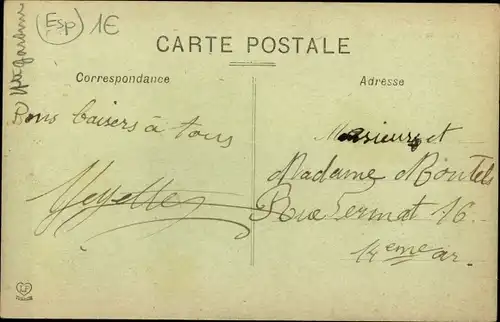 Esp 1€
CARTE POSTALE
Correspondance
Adresse
Bons baisers à tous
Monsieur et
Madame
Rue Fermat 16
14eme ar.